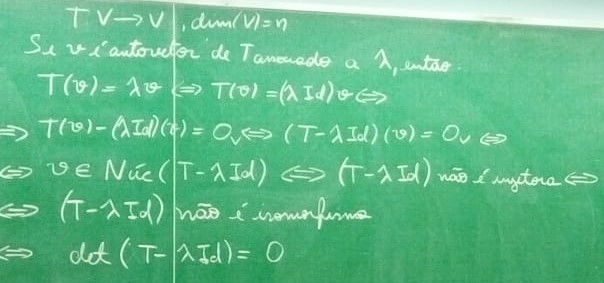 T V → V, dim(V) = n
Se v é autovetor de T associado a λ, então:
T(v) = λv ⇔ T(v) = (λ Id)v ⇔
⇒ T(v) - (λId)(v) = 0v ⇔ (T - λId)(v) = 0v ⇔
⇔ v ∈ Núc(T - λId) ⇔ (T - λId) não é injetora ⇔
⇔ (T - λId) não é isomorfismo
⇔ det(T - λId) = 0